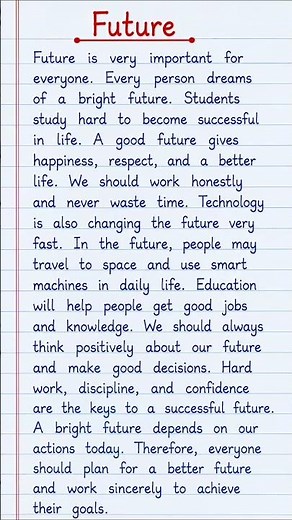 Future
Future is very important for
everyone. Every person dreams
of a bright future. Students
study hard to become successful
in life. A good future gives
happiness, respect, and a better
life. We should work honestly
and never waste time. Technology
is also changing the future very
fast. In the future, people may
travel to space and use smart
machines in daily life. Education
will help people get good jobs
and knowledge. We should always
think positively about our future
and make good decisions. Hard
work, discipline, and confidence
are the keys to a successful future.
A bright future depends on our
actions today. Therefore, everyone
should plan for a better future
and work sincerely to achieve
their goals.